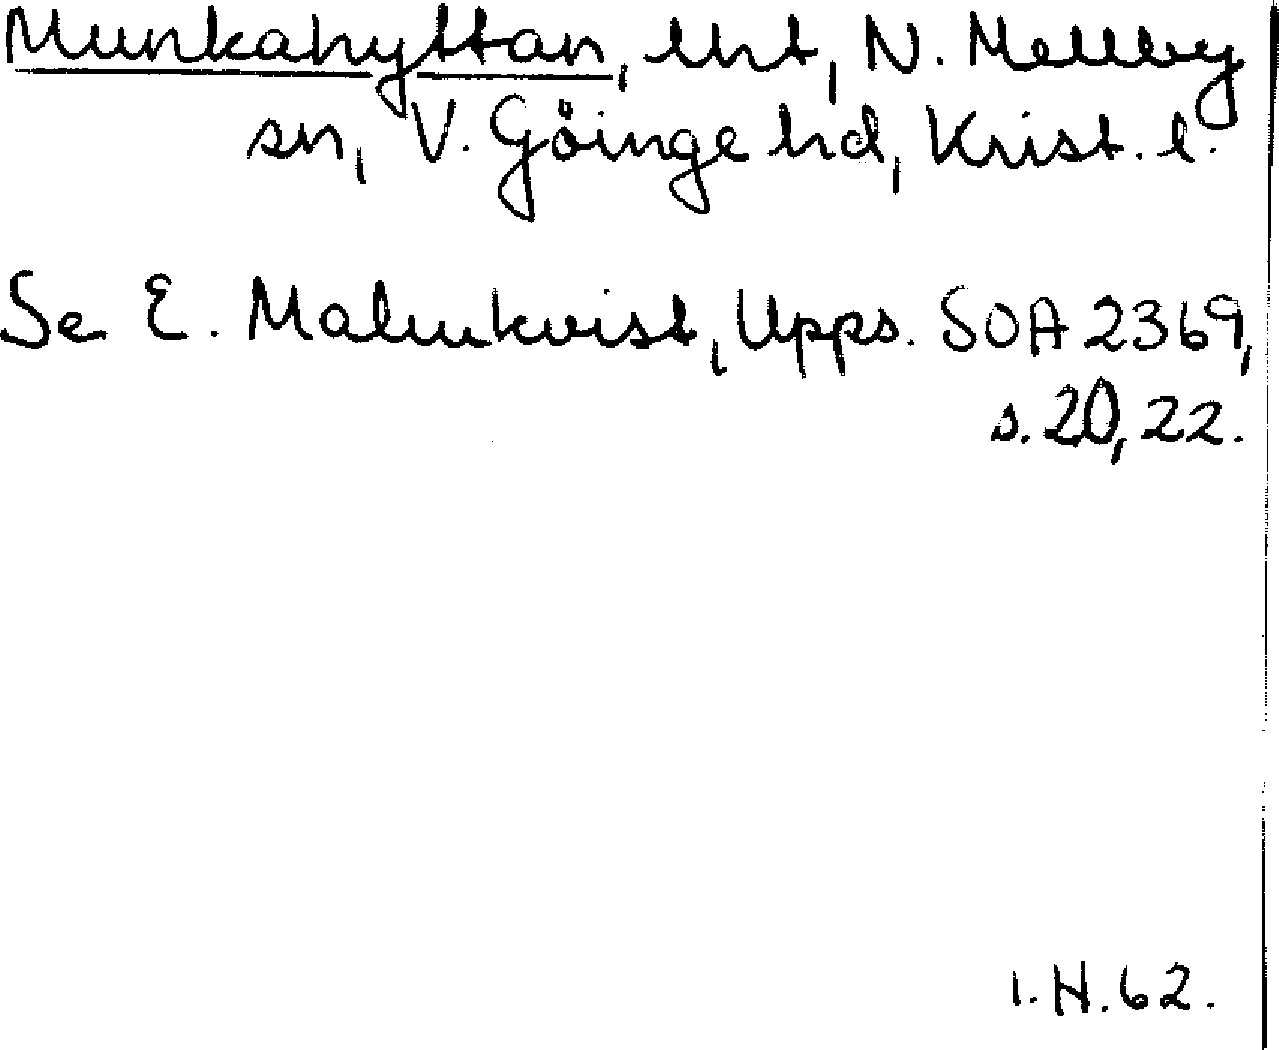 Munkahyttan, lht, N. Mellby
sn, V. Göinge hd, Krist. l.
Se E. Malmkvist, Upps. SOA 2369,
s. 20, 22.
I. H. 62.